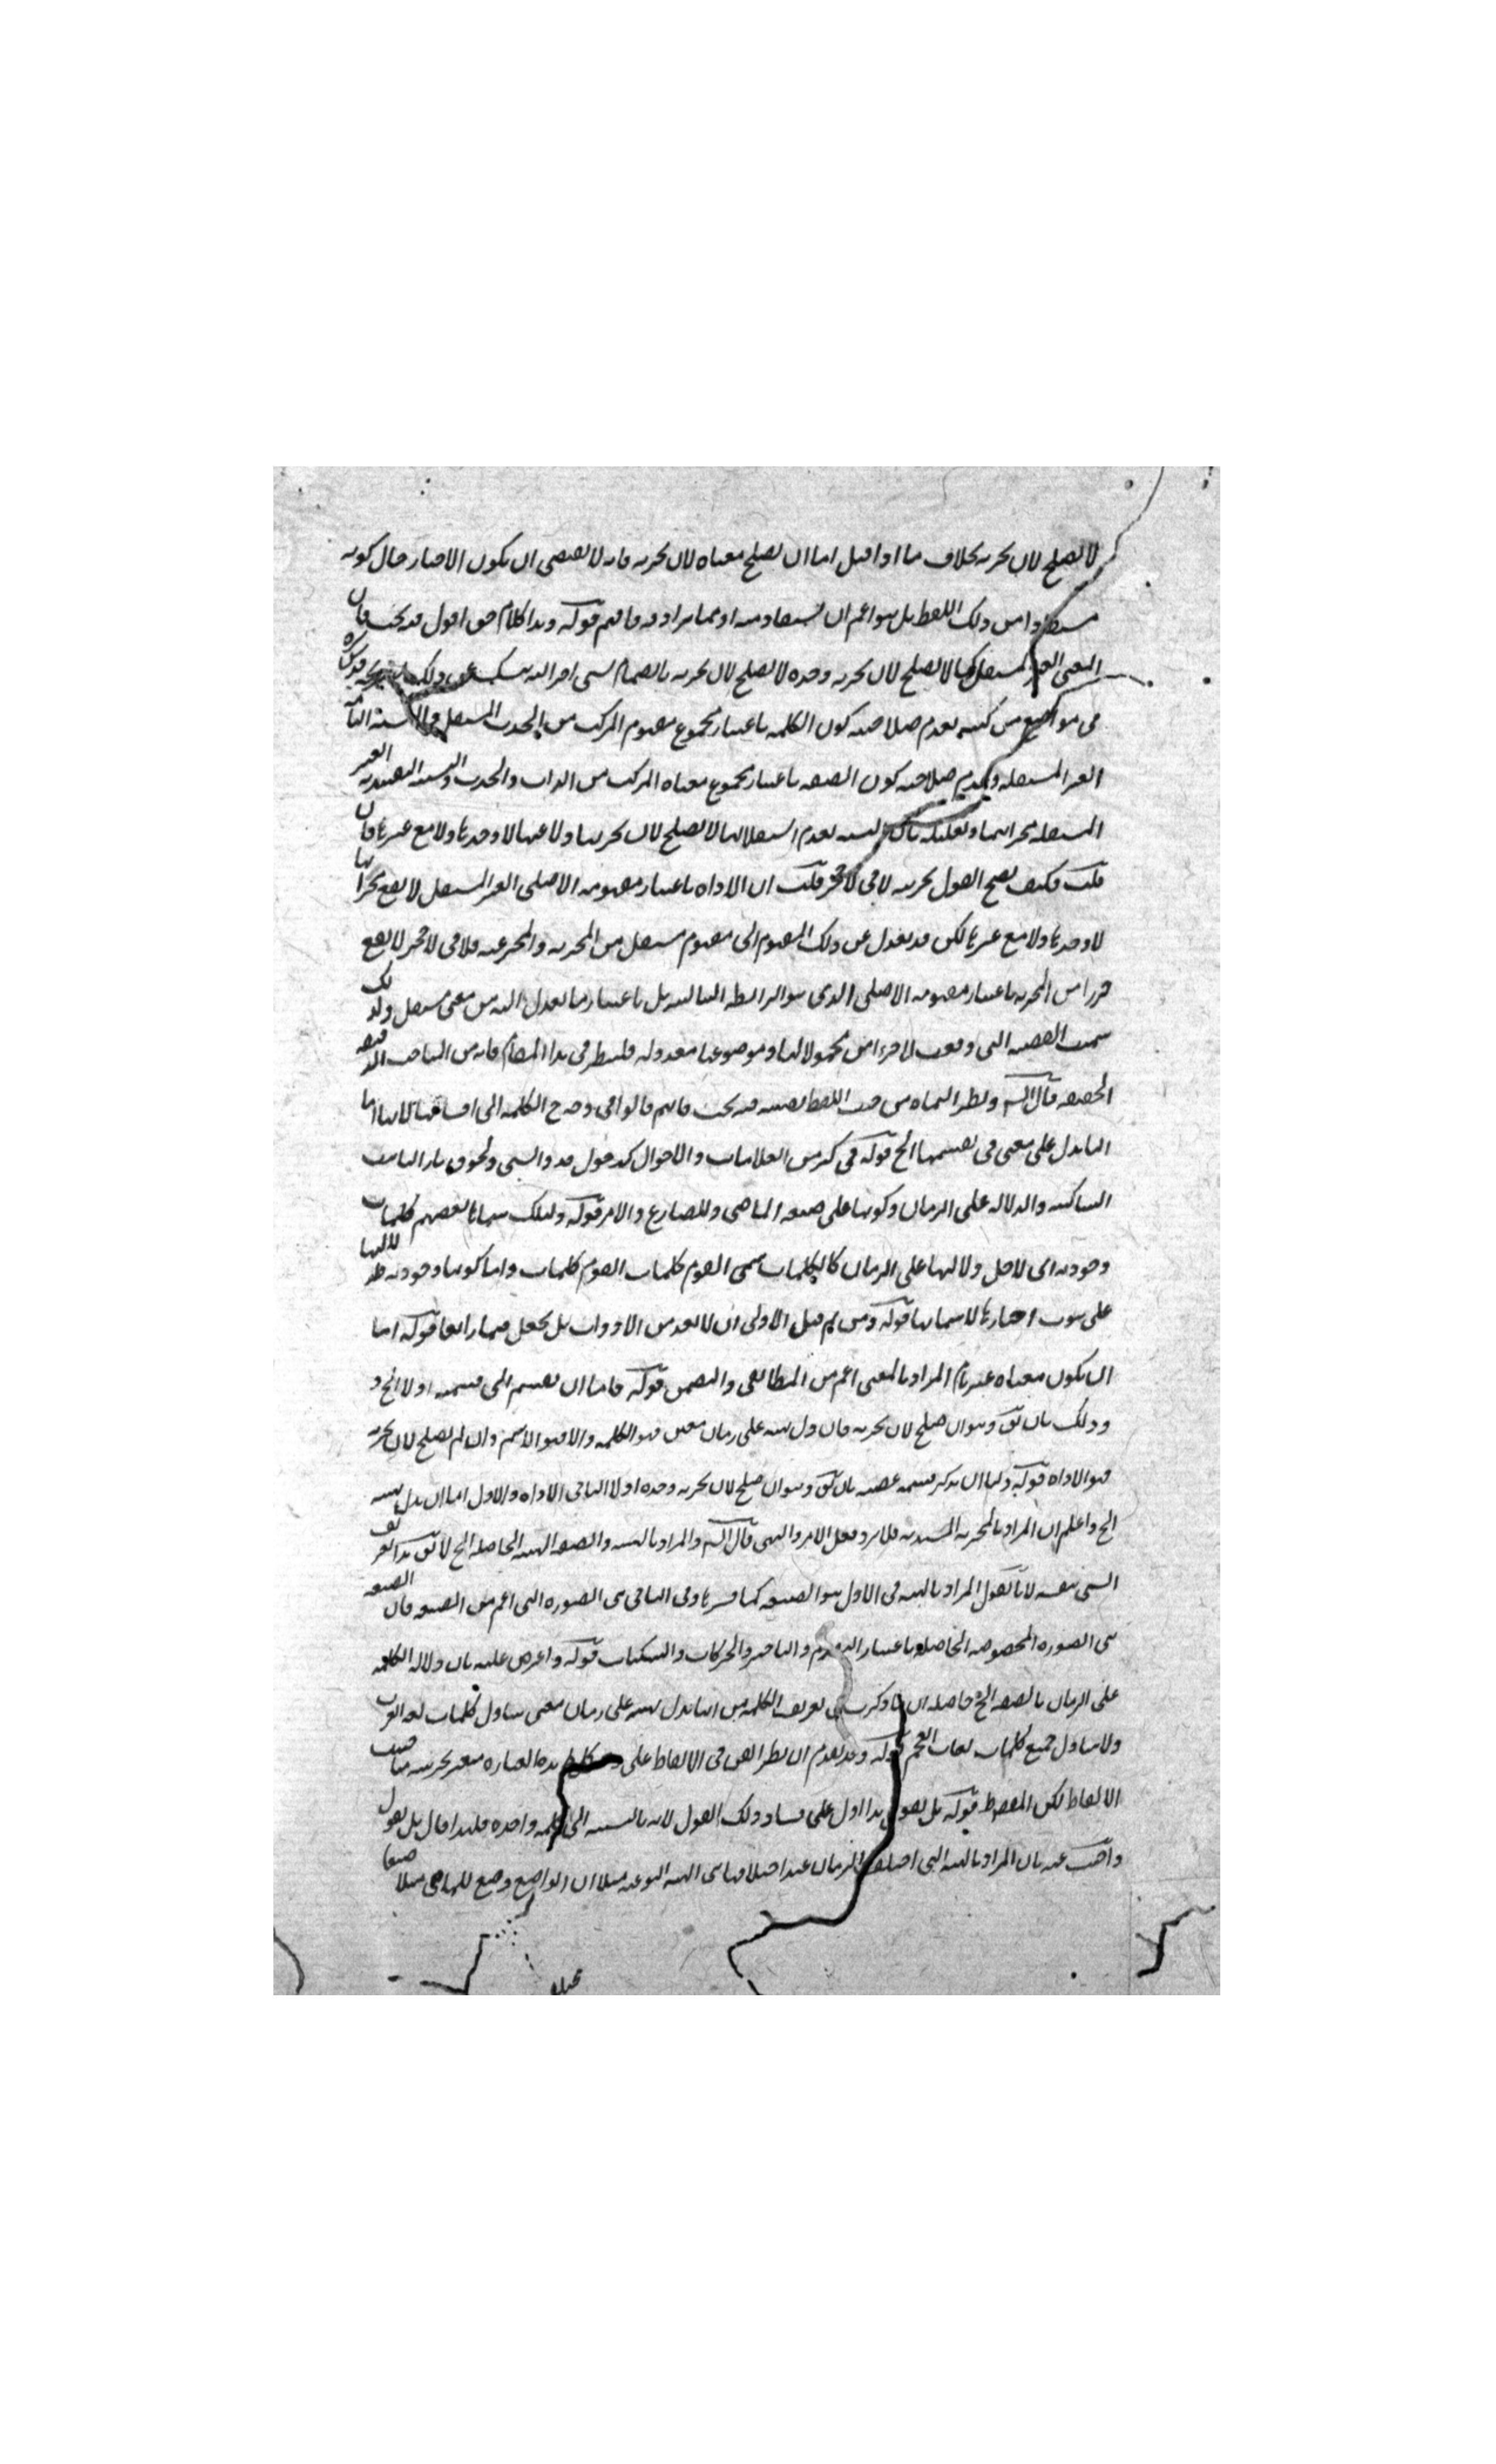 لا يصلح لان يخبر به بخلاف ما اذا قيل اما ان يصلح معناه لان يخبر به فانه لا يقتضى ان يكون الاخبار حال كونه
مستفادا من ذلك اللفظ بل هو اعم ان يستفاد منه او مما يرادفه فافهم قوله وهذا كلام حق اقول فيه بحث فان
المعنى الغير المستقل كما لا يصلح لان يخبر به وحده لا يصلح لان يخبر به بانضمام شىء اخر اليه
فى مواضع من كتبه بعدم صلاحية كون الكلمة باعتبار مجموع مفهوم المركب من الحدث المستقل والنسبة التامة
الغير المستقلة وبعدم صلاحية كون الصفة باعتبار مجموع معناه المركب من الذات والحدث والنسبة التقييدية الغير
المستقلة مخبرا بهما وتعليله بان النسبة لعدم استقلالها لا يصلح لان يخبر بها ولا عنها لا وحدها ولا مع غيرها فان
قلت فكيف يصح القول بخبرية لا فى لا حجر قلت ان الاداة باعتبار مفهومه الاصلى الغير المستقل لا يقع مخبرا بها
لا وحدها ولا مع غيرها لكن قد يعدل عن ذلك المفهوم الى مفهوم مستقل من المخبر به والمخبر عنه فلا فى لا حجر لا يقع
جزءا من المخبر به باعتبار مفهومه الاصلى الذى هو الرابطة السالبة بل باعتبار ما يعدل اليه من معنى مستقل ولذلك
سميت القضية التى وقعت لا جزءا من محمولاتها وموضوعها معدولة فلينظر فى هذا المقام فانه من المباحث الدقيقة
الحقيقة قال الش ونظر النحاة من حيث اللفظ نفسه فيه بحث فانهم قالوا فى وجه ح الكلمة الى اقسامها ثلاثة انها اما
اما يدل على معنى فى نفسها الخ قوله فى كثير من العلامات والاحوال كدخول قد والسين ولحوق تاء التانيث
الساكنة والدلالة على الزمان وكونها على صيغة الماضى والمضارع والامر قوله ولذلك سماها بعضهم كلمات
وجودية اى لاجل دلالتها على الزمان كالكلمات سمى القوم كلمات القوم كلمات واما كونها وجودية فلدلالتها
على ثبوت اخبارها لاسمائها قوله ومن ثم قيل الاولى ان لا يعد من الادوات بل يجعل قسما رابعا قوله اما
ان يكون معناه غير تام المراد بالمعنى اعم من المطابقى والتضمنى قوله فاما ان يقسم الى قسمة اولا الخ و
وذلك بان يق وهو ان صلح لان يخبر به فان دل بهيئته على زمان معين فهو الكلمة والا فهو الاسم وان لم يصلح لان يخبر به
فهو الاداة قوله واما ان يذكر قسمه عقيبه بان يق وهو ان صلح لان يخبر به وحده اولا الثانى الاداة والاول اما ان يدل بهيئته
الخ واعلم ان المراد بالمخبر به المسند به فلا يرد فعل الامر والنهى قال الش والمراد بالهيئة والصيغة الهيئة الحاصلة الخ لا يق هذا تعريف
الشىء بنفسه لانا نقول المراد بالهيئة فى الاول هو الصيغة كما فسرها وفى الثانى هى الصورة التى اعم من الصيغة فان الصيغة
هى الصورة المخصوصة الحاصلة باعتبار التقديم والتاخير والحركات والسكنات قوله واعترض عليه بان دلالة الكلمة
على الزمان بالصيغة الخ حاصله ان ما ذكر فى تعريف الكلمة من انها يدل بهيئته على زمان معين يتناول كلمات لغة العرب
ولا يتناول جميع كلمات لغات العجم قوله وقد تقدم ان نظر الفن فى الالفاظ على هذه العبارة معتبر بحسب مناسب
الالفاظ لكن المفصل قوله بل نقول هذا اول على فساد ذلك القول لانه بالنسبة الى كلمة واحدة فلهذا قال بل نقول
واجيب عنه بان المراد بالهيئة التى اختلف الزمان عند اختلافها هى الهيئة النوعية مثلا ان الواضع وضع للماضى مثلا صيغا